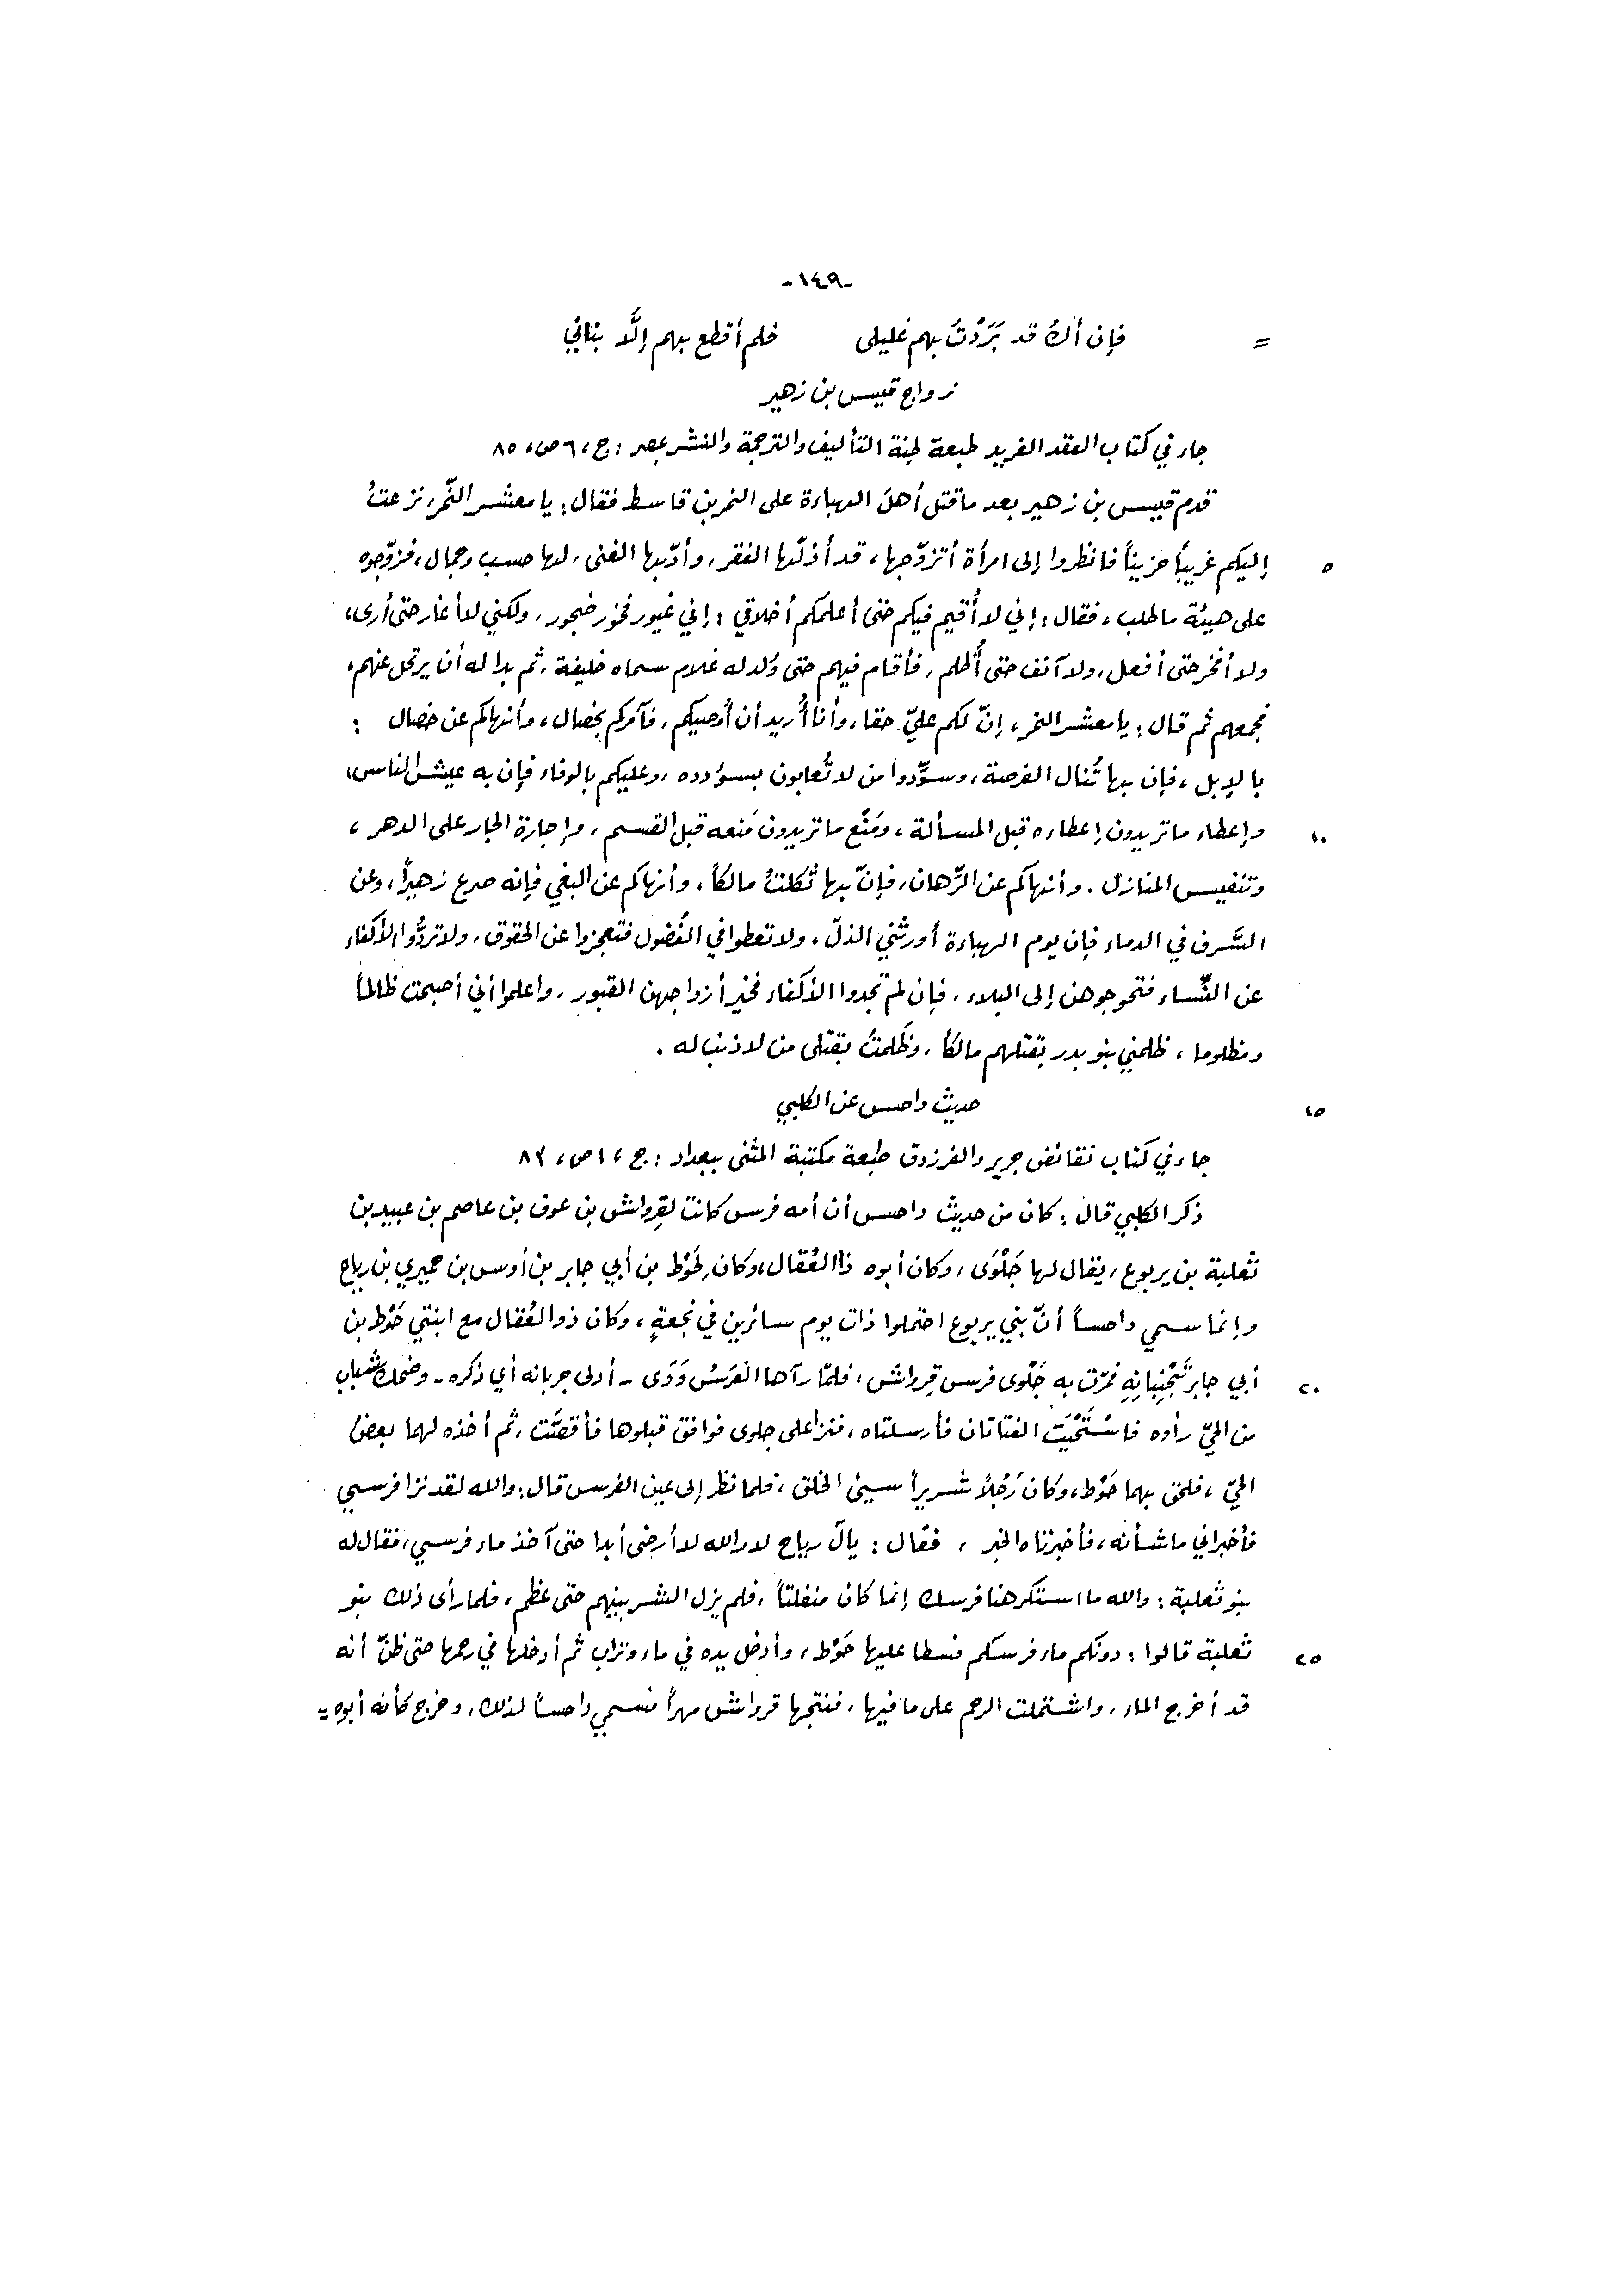 -١٤٩-
= فإن أكُ قد بَرَدْتُ بهم غليلى فلم أقطع بهم إلَّا بناني
زواج قيس بن زهير
جاء في كتاب العقد الفريد طبعة لجنة التأليف والترجمة والنشر بمصر : ج ، ٦ ص ، ٨٥
قدم قيس بن زهير بعد ما قتل أهلَ الهباءة على النمر بن قاسط فقال : يا معشر النّمر ، نزعتُ
٥ إليكم غريباً حزيناً فانظروا إلى امرأة أتزوّجها ، قد أذلّها الفقر ، وأدّبها الغنى ، لها حسب وجمال ، فزوّجوه
على هيئة ما طلب ، فقال : إني لا أُقيم فيكم حتى أعلمكم أخلاقي : إني غيور فخور ضجور ، ولكني لا أغار حتى أرى ،
ولا أفخر حتى أفعل ، ولا آنف حتى أُظلم ، فأقام فيهم حتى وُلد له غلام سماه خليفة ، ثم بدا له أن يرتحل عنهم ،
فجمعهم ثم قال : يا معشر النمر ، إنّ لكم عليّ حقا ، وأنا أُريد أن أُوصيكم ، فآمركم بخصال ، وأنهاكم عن خصال :
بالإبل ، فإن بها تُنال الفرصة ، وسوِّدوا من لا تُعابون بسؤدده ، وعليكم بالوفاء فإن به عيش الناس ،
١٠ وإعطاء ما تريدون إعطاءه قبل المسألة ، ومَنْع ما تريدون مَنعه قبل القسم ، وإجارة الجار على الدهر ،
وتنفيس المنازل . وأنهاكم عن الرِّهان ، فإنّ بها ثكلتُ مالكاً ، وأنهاكم عن البغي فإنه صرع زهيراً ، وعن
السَّرف في الدماء فإن يوم الهباءة أورثني الذلّ ، ولا تعطوا في الفُضول فتعجزوا عن الحقوق ، ولا تردُّوا الأكفاء
عن النِّساء فتحوجوهن إلى البلاء ، فإن لم تجدوا الأكفاء فخير أزواجهن القبور ، واعلموا أني أصبحت ظالماً
ومظلوما ، ظلمني بنو بدر بقتلهم مالكاً ، وظَلمتُ بقتلى من لا ذنب له .
١٥ حديث داحس عن الكلبي
جاء في كتاب نقائض جرير والفرزدق طبعة مكتبة المثنى ببغداد : ج ، ١ ص ، ٨٣
ذكر الكلبي قال : كان من حديث داحس أن أمه فرس كانت لقِرواش بن عوف بن عاصم بن عبيد بن
ثعلبة بن يربوع ، يقال لها جَلْوَى ، وكان أبوه ذا العُقال ، وكان لِحَوْط بن أبي جابر بن أوس بن حميري بن رياح
وإنما سمي داحساً أنّ بني يربوع احتملوا ذات يوم سائرين في نجعةٍ ، وكان ذو العُقال مع ابنتي حَوْط بن
٢٠ أبي جابر تَجْنِبانِهِ فمرّت به جَلْوى فرس قِرواش ، فلمّا رآها الفَرَسُ وَدَى - أدلى جربانه أي ذكره - وضحك شباب
من الحيّ رأوه فاسْتَحْيَت الفتاتان فأرسلتاه ، فنزا على جلوى فوافق قبلوها فأقصَّت ، ثم أخذه لهما بعضُ
الحيّ ، فلحق بهما حَوْط ، وكان رَجُلاً شريراً سيئ الخلق ، فلما نظر إلى عين الفرس قال : والله لقد نزا فرسي
فأخبراني ما شأنه ، فأخبرتاه الخبر ، فقال : يالَ رياح لا والله لا أرضى أبدا حتى آخذ ماء فرسي ، فقال له
بنو ثعلبة : والله ما استكرهنا فرسك إنما كان منفلتاً ، فلم يزل الشر بينهم حتى عظم ، فلما رأى ذلك بنو
٢٥ ثعلبة قالوا : دونكم ماء فرسكم فسطا عليها حَوْط ، وأدخل يده في ماء وتراب ثم أدخلها في رحمها حتى ظنّ أنه
قد أخرج الماء ، واشتملت الرحم على ما فيها ، فنتجها قرواش مهراً فسمي داحساً لذلك ، وخرج كأنه أبوه =